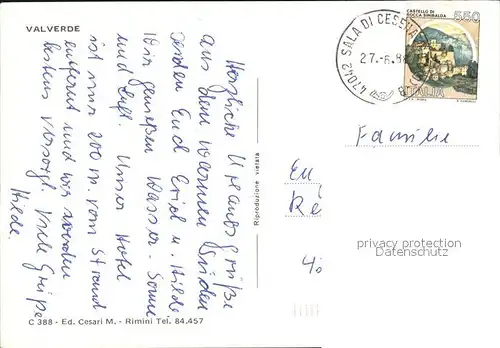 VALVERDE
Herzliche Urlaubsgrüße
aus dem warmen Süden
senden Euch Erich u. Hilde
Wir genießen Wasser - Sonne
und Luft. Unser Hotel
ist nur 200 m. vom Strand
entfernt und wir werden
bestens versorgt. Viele Grüße
Hilde.
C 388 - Ed. Cesari M. - Rimini Tel. 84.457
Riproduzione vietata
CASTELLO DI
ROCCA SINIBALDA
550
ITALIA
47042 SALA DI CESENA
27.-6.
Familie
privacy protection
Datenschutz